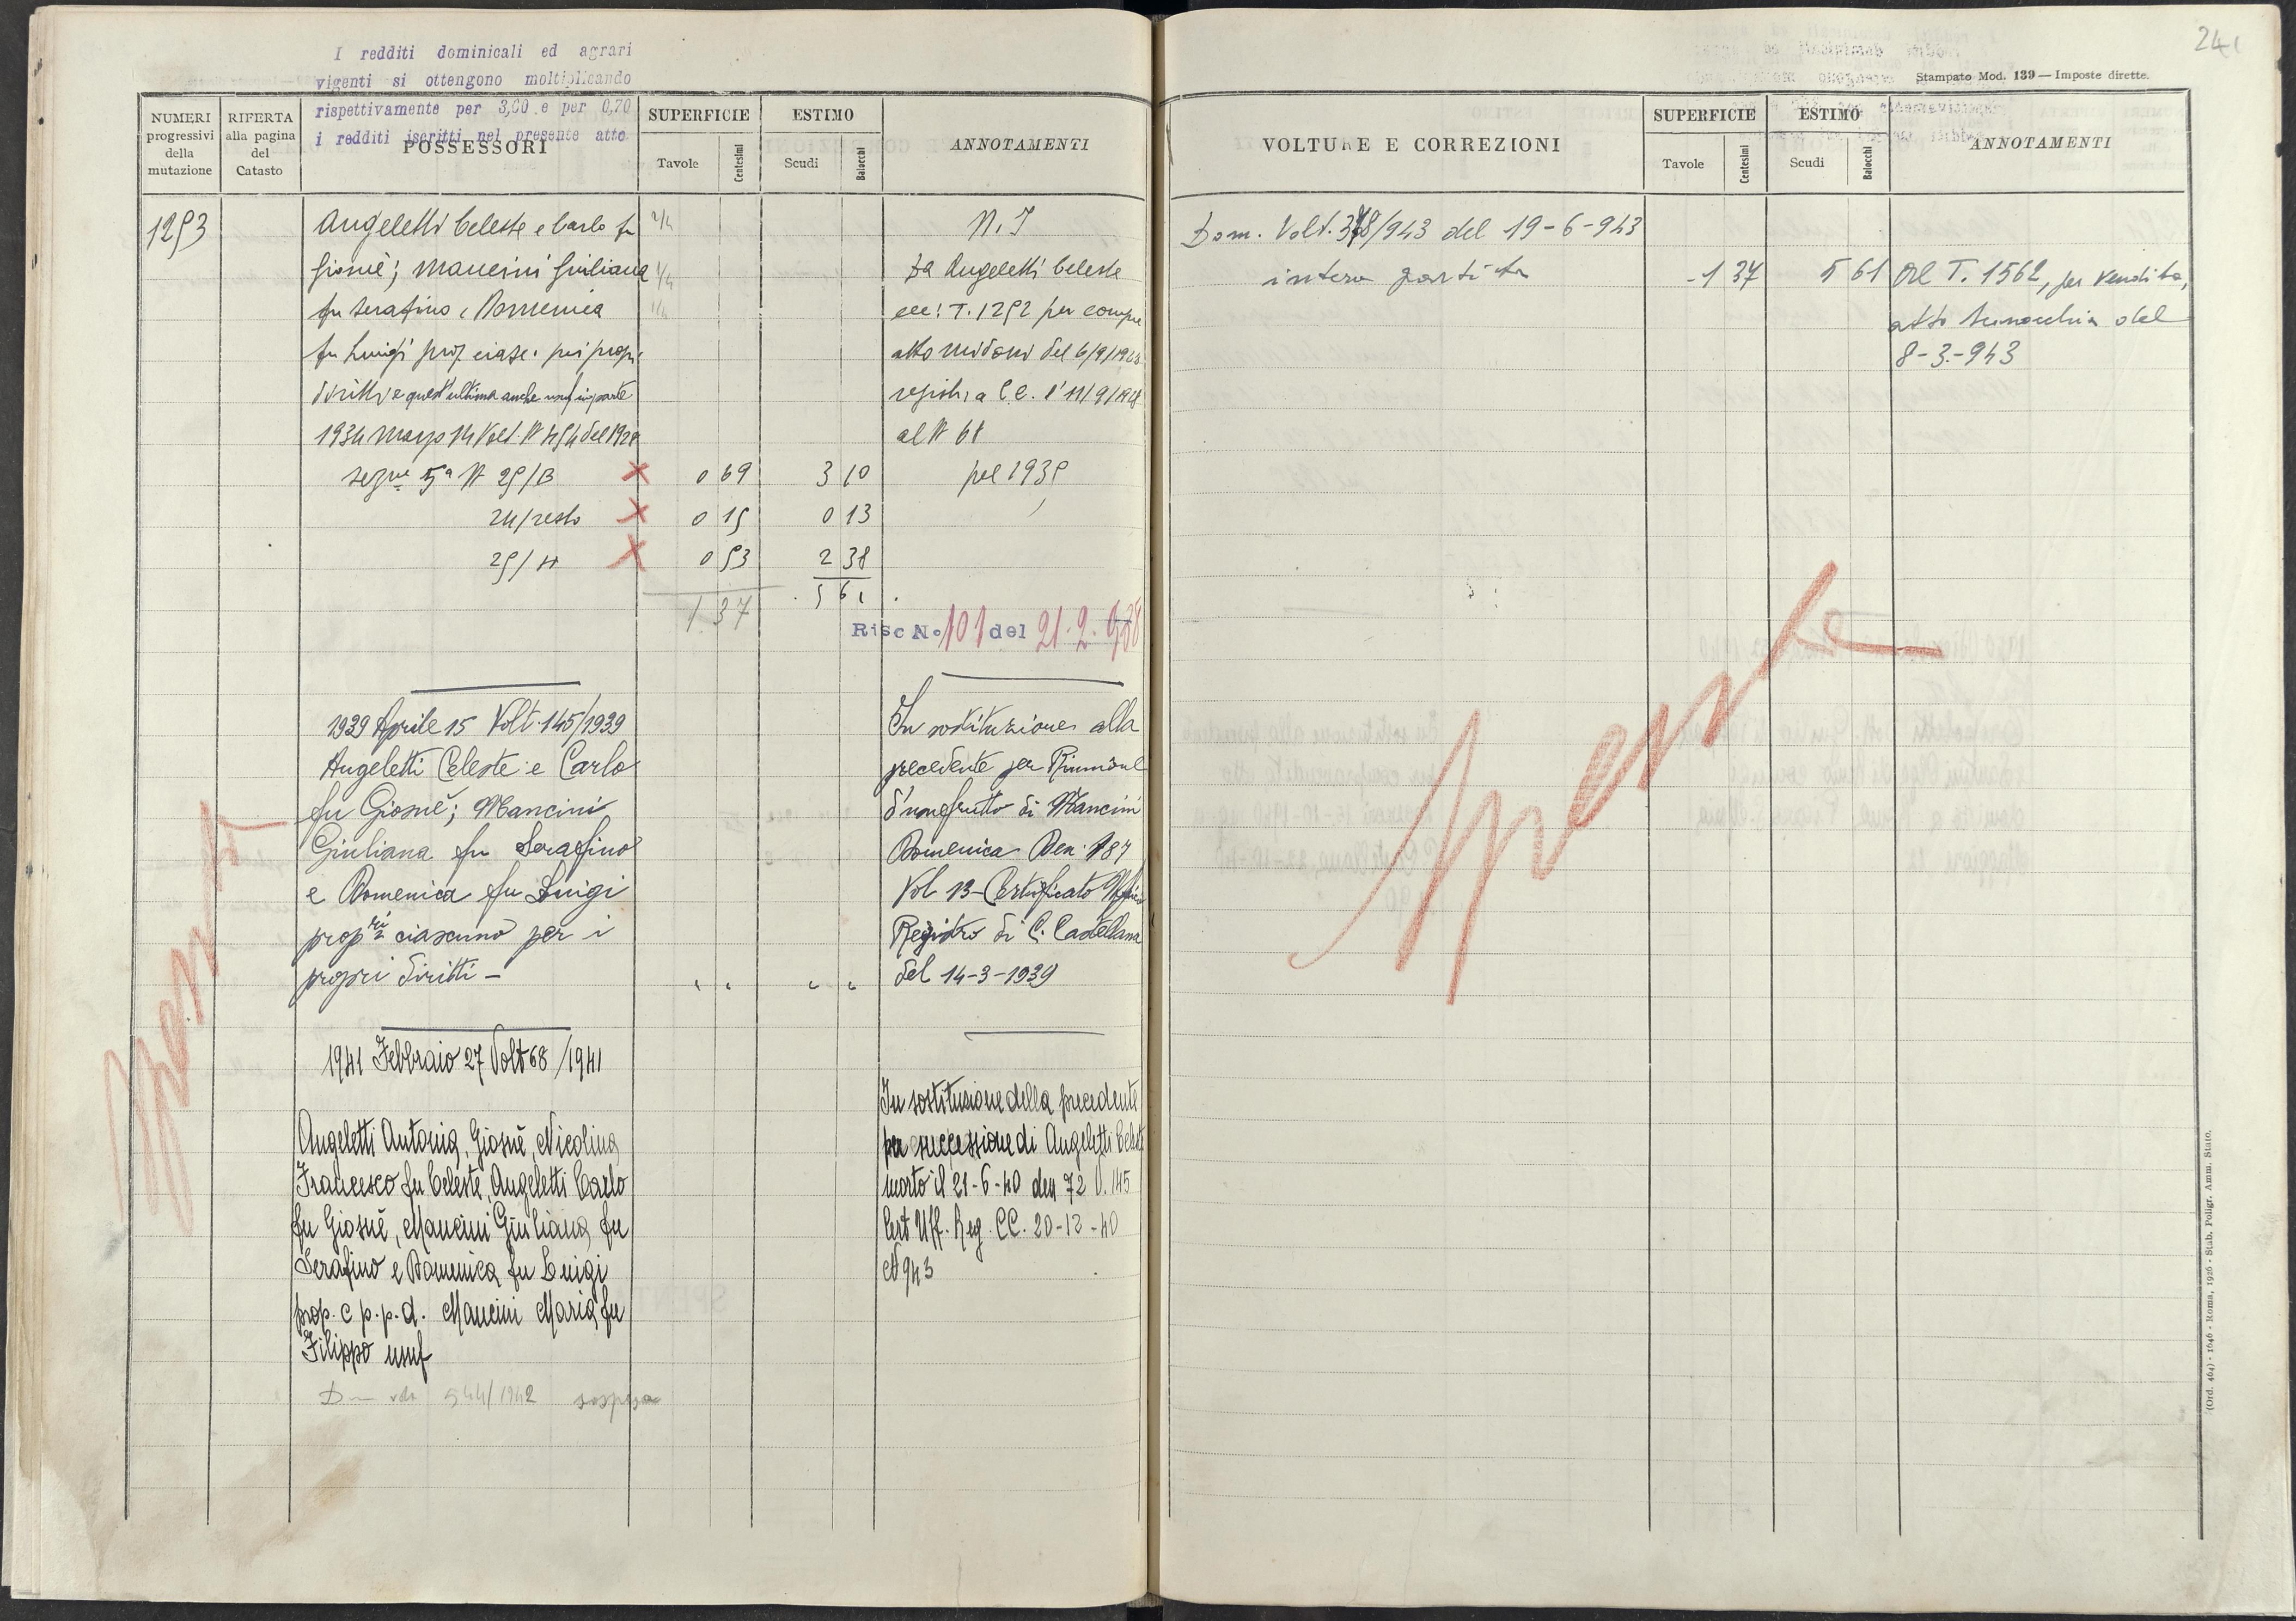 I redditi dominicali ed agrari
vigenti si ottengono moltiplicando
rispettivamente per 3,00 e per 0,70
i redditi iscritti nel presente atto
NUMERI progressivi della mutazione
RIFERTA alla pagina del Catasto
POSSESSORI
SUPERFICIE
Tavole Centesimi
ESTIMO
Scudi Baiocchi
ANNOTAMENTI
1253
Angeletti Celeste e Carlo fu
Giosuè; Mancini Giuliana
fu Serafino e Domenica
fu Luigi prop. ciasc. pei propri
diritti e quest'ultima anche usuf in parte
1934 Marzo 14 Volt. N 454 del 1928
Sezne 5a N 25/B 0 69 3 10
24/resto 0 15 0 13
25/H 0 53 2 38
1 37 5 61
N. I
Da Angeletti Celeste
ecc: T. 1252 per compra
atto Midossi del 6/9/1928
registr. a C.C. l'11/9/1928
al N 68
pel 1935
Risc No 101 del 21.2.938
1939 Aprile 15 Volt. 145/1939
Angeletti Celeste e Carlo
fu Giosuè; Mancini
Giuliana fu Serafino
e Domenica fu Luigi
propri ciascuno per i
propri diritti -
In sostituzione alla
precedente per Riunione
d'usufrutto di Mancini
Domenica Den. 187
Vol 13 - Certificato Ufficio
Registro di C. Castellana
del 14-3-1939
1941 Febbraio 27 Volt 68/1941
Angeletti Antonia, Giosuè, Nicolina
Francesco fu Celeste, Angeletti Carlo
fu Giosuè, Mancini Giuliana fu
Serafino e Domenica fu Luigi
prop. c p. p. d. Mancini Maria fu
Filippo usuf
In sostituzione della precedente
per successione di Angeletti Celeste
morto il 21-6-40 den 72 V. 145
Cert Uff. Reg. CC. 20-12-40
N 943
544/1942 sospesa
Spenta
241
Stampato Mod. 139 — Imposte dirette.
VOLTURE E CORREZIONI
SUPERFICIE
Tavole Centesimi
ESTIMO
Scudi Baiocchi
ANNOTAMENTI
Dom. Volt. 378/943 del 19-6-943
intera partita - 1 37 5 61 Al T. 1562, per vendita,
atto del
8-3-943
Spenta
(Ord. 464) - 1646 - Roma, 1926 - Stab. Poligr. Amm. Stato.